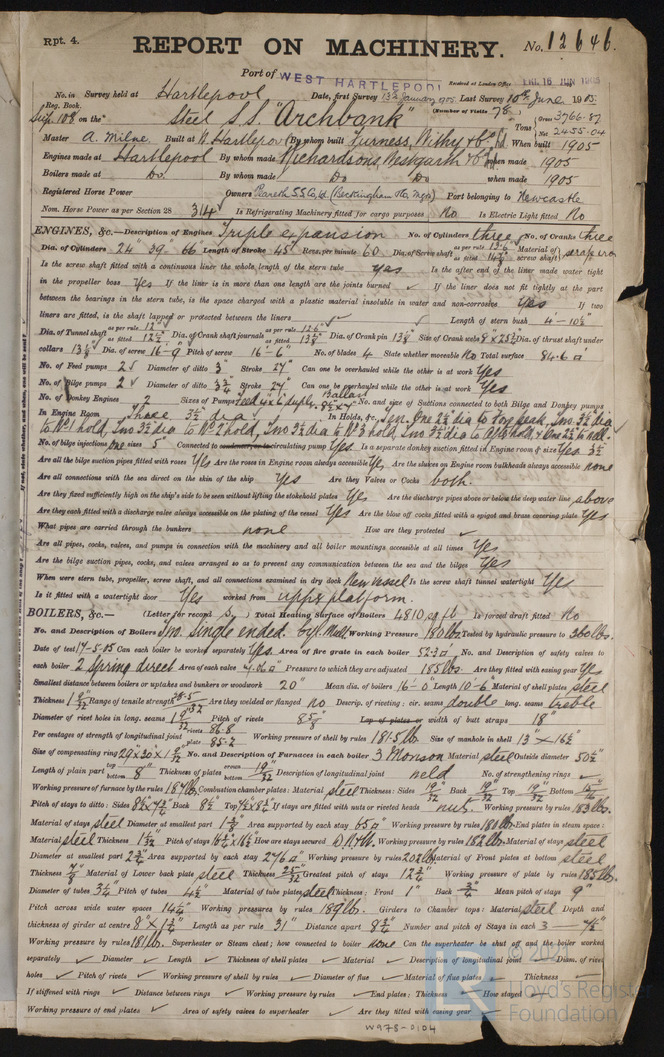 Rpt. 4.
REPORT ON MACHINERY.
No. 12646.
Port of WEST HARTLEPOOL
Received at London Office FRI. 16 JUN 1905
No. in Survey held at Hartlepool Date, first Survey 13th January 1905. Last Survey 10th June 1905.
Reg. Book. (Number of Visits 78)
Sup. 108 on the Steel S.S. "Archbank" Tons Gross 3766.87 Net 2455.04
Master A. Milne Built at W. Hartlepool By whom built Furness, Withy & Co Ld. When built 1905
Engines made at Hartlepool By whom made Richardsons, Westgarth & Co Ld when made 1905
Boilers made at Do. By whom made Do Do when made 1905
Registered Horse Power Owners Pareth SS Co. Ld. (Beckingham & Co. Mgrs) Port belonging to Newcastle
Nom. Horse Power as per Section 28 314 Is Refrigerating Machinery fitted for cargo purposes No Is Electric Light fitted No
ENGINES, &c.—Description of Engines Triple expansion No. of Cylinders three No. of Cranks three
Dia. of Cylinders 24" 39" 66" Length of Stroke 45" Revs. per minute 60 Dia. of Screw shaft as per rule 13.6" as fitted 14 Material of screw shaft scrap iron
Is the screw shaft fitted with a continuous liner the whole length of the stern tube yes Is the after end of the liner made water tight
in the propeller boss Yes If the liner is in more than one length are the joints burned If the liner does not fit tightly at the part
between the bearings in the stern tube, is the space charged with a plastic material insoluble in water and non-corrosive Yes If two
liners are fitted, is the shaft lapped or protected between the liners Length of stern bush 4'-10½"
Dia. of Tunnel shaft as per rule 12" as fitted 12½" Dia. of Crank shaft journals as per rule 12.6" as fitted 13¼" Dia. of Crank pin 13¼" Size of Crank webs 8"x25½ Dia. of thrust shaft under
collars 13¼" Dia. of screw 16'-9" Pitch of screw 16'-6" No. of blades 4 State whether moveable No Total surface 84.6
No. of Feed pumps 2 Diameter of ditto 3" Stroke 27" Can one be overhauled while the other is at work Yes
No. of Bilge pumps 2 Diameter of ditto 3¾" Stroke 27" Can one be overhauled while the other is at work Yes
No. of Donkey Engines 2 Sizes of Pumps Feed 4"x6" duplex. Ballast No. and size of Suctions connected to both Bilge and Donkey pumps
In Engine Room Three 3½" dia In Holds, &c. Ten. One 2½" dia to Fore peak, Two 3½" dia
to No 1 hold, Two 3½" dia to No 2 hold, Two 3½" dia to No 3 hold, Two 3½" dia to Aft hold, & One 2½" to well.
No. of bilge injections one sizes 5" Connected to circulating pump Yes. Is a separate donkey suction fitted in Engine room & size Yes 3½
Are all the bilge suction pipes fitted with roses Yes Are the roses in Engine room always accessible Yes Are the sluices on Engine room bulkheads always accessible none
Are all connections with the sea direct on the skin of the ship Yes Are they Valves or Cocks both.
Are they fixed sufficiently high on the ship's side to be seen without lifting the stokehold plates Yes Are the discharge pipes above or below the deep water line above
Are they each fitted with a discharge valve always accessible on the plating of the vessel Yes Are the blow off cocks fitted with a spigot and brass covering plate Yes
What pipes are carried through the bunkers none How are they protected
Are all pipes, cocks, valves, and pumps in connection with the machinery and all boiler mountings accessible at all times Yes
Are the bilge suction pipes, cocks, and valves arranged so as to prevent any communication between the sea and the bilges Yes
When were stern tube, propeller, screw shaft, and all connections examined in dry dock New vessel Is the screw shaft tunnel watertight Yes
Is it fitted with a watertight door Yes worked from upper platform.
BOILERS, &c.— (Letter for record S.) Total Heating Surface of Boilers 4810 sq ft Is forced draft fitted No
No. and Description of Boilers Two Single ended Working Pressure 180 lbs. Tested by hydraulic pressure to 360 lbs.
Date of test 17-5-05 Can each boiler be worked separately Yes. Area of fire grate in each boiler 52.3 No. and Description of safety valves to
each boiler 2 spring direct Area of each valve Pressure to which they are adjusted 185 lbs. Are they fitted with easing gear Yes
Smallest distance between boilers or uptakes and bunkers or woodwork 20" Mean dia. of boilers 16'-0" Length 10'-6" Material of shell plates steel
Thickness 1 9/32" Range of tensile strength 28.5 32 Are they welded or flanged no Descrip. of riveting: cir. seams double long. seams treble
Diameter of rivet holes in long. seams 1 9/32" Pitch of rivets 8 5/8" Lap of plates or width of butt straps 18"
Per centages of strength of longitudinal joint rivets 86.8 plate 85.2 Working pressure of shell by rules 181.5 lbs Size of manhole in shell 13" x 16½"
Size of compensating ring 29"x30"x1 9/32" No. and Description of Furnaces in each boiler 3 Morison Material steel Outside diameter 50½"
Length of plain part top bottom 8" Thickness of plates crown bottom 19/32" Description of longitudinal joint weld No. of strengthening rings
Working pressure of furnace by the rules 187 lbs. Combustion chamber plates: Material steel Thickness: Sides 19/32 Back 19/32 Top 19/32 Bottom
Pitch of stays to ditto: Sides Back 8½ Top If stays are fitted with nuts or riveted heads nut. Working pressure by rules 183 lbs.
Material of stays steel Diameter at smallest part 1⅜" Area supported by each stay 65 Working pressure by rules 180 lbs. End plates in steam space:
Material steel Thickness 1 1/32" Pitch of stays 16½"x16½" How are stays secured D N & W. Working pressure by rules 182 lbs. Material of stays steel
Diameter at smallest part 2¾" Area supported by each stay 276 Working pressure by rules 202 lbs. Material of Front plates at bottom steel
Thickness Material of Lower back plate steel Thickness 25/32" Greatest pitch of stays 12¾" Working pressure of plate by rules 185 lbs.
Diameter of tubes 3¼" Pitch of tubes 4½" Material of tube plates steel Thickness: Front 1" Back ¾" Mean pitch of stays 9"
Pitch across wide water spaces 14¼" Working pressures by rules 189 lbs. Girders to Chamber tops: Material steel Depth and
thickness of girder at centre 8"x1¾" Length as per rule 31" Distance apart 8¾" Number and pitch of Stays in each 3 — 7½"
Working pressure by rules 181 lbs. Superheater or Steam chest; how connected to boiler None Can the superheater be shut off and the boiler worked
separately Diameter Length Thickness of shell plates Material Description of longitudinal joint Diam. of rivet
holes Pitch of rivets Working pressure of shell by rules Diameter of flue Material of flue plates Thickness
If stiffened with rings Distance between rings Working pressure by rules End plates: Thickness How stayed
Working pressure of end plates Area of safety valves to superheater Are they fitted with easing gear
W978-0104
Lloyd's Register
Foundation